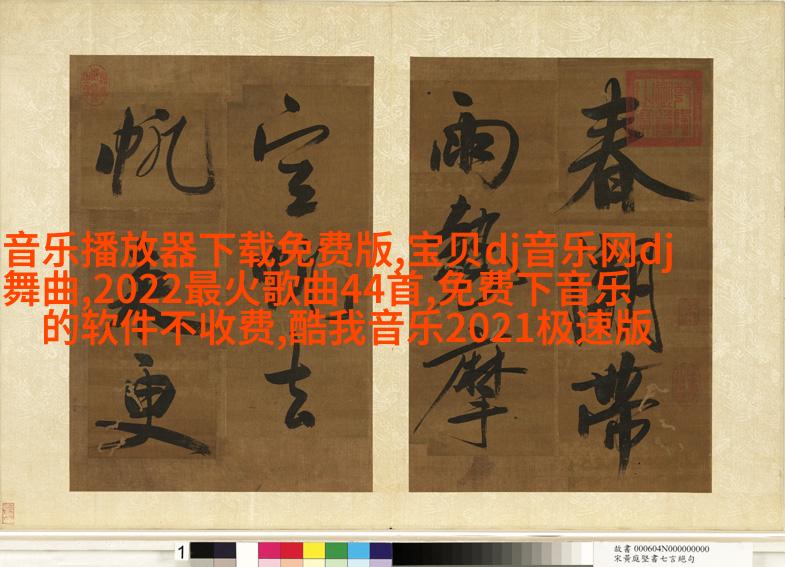 春帶
雨勢摩
空去
帆更
音乐播放器下载免费版,宝贝dj音乐网dj
舞曲,2022最火歌曲44首,免费下音乐
的软件不收费,酷我音乐2021极速版
1
故書 000604N000000000
宋黃庭堅書七言絕句